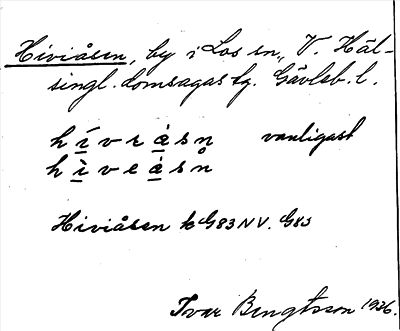 Hiviåsen, by i Los sn., V. Häl-
singl. domsagas tg. Gävleb. l.
hívıàsn̥ vanligast
hìveàsn̥
Hiviåsen k G83NV. G83
Ivar Bengtsson 1926.